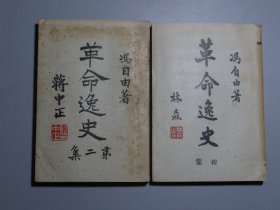 馮自由著
革命逸史
第二集
蔣中正
馮自由著
革命逸史
初集
林森